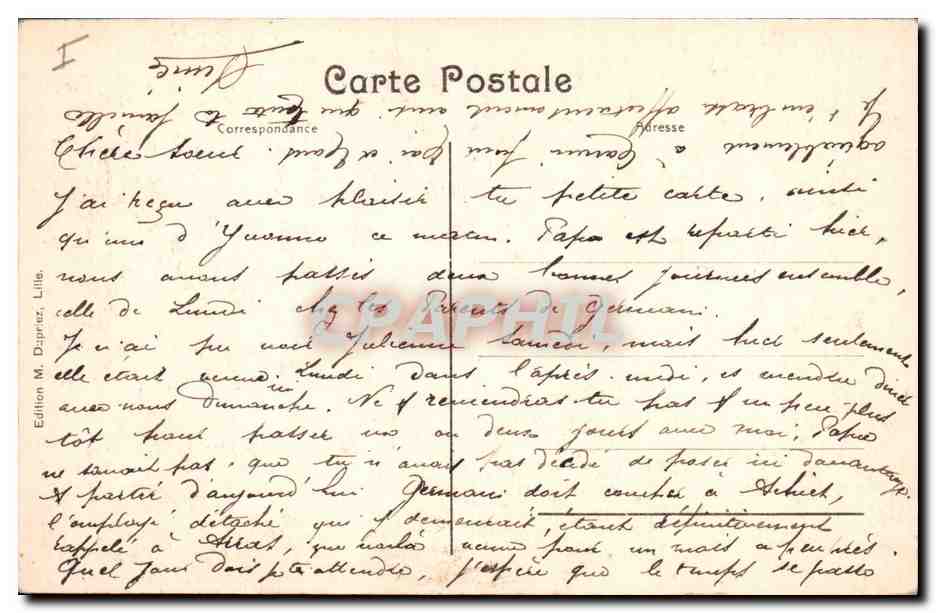 I
Carte Postale
Correspondance
Adresse
Chère soeur.
J'ai reçu avec plaisir ta petite carte, ainsi
qu'une d'Yvonne ce matin. Papa est reparti hier,
nous avons passés deux bonnes journées ensemble,
celle de Lundi chez les Parents de Germani.
Je n'ai pu voir Julienne Samedi, mais hier seulement
elle était venue Lundi dans l'après-midi, et
avec nous Dimanche. Ne reviendras tu pas un peu plus
tôt pour passer un ou deux jours avec moi, Papa
ne savait pas que tu n'avais pas décidé de poser ici davantage.
partir d'aujourd'hui Germani doit coucher à Achiet,
l'employé détaché qui y demeurait, étant définitivement
rappelé à Arras, que voilà venue pour un mois à peu près.
Quel jour dois-je t'attendre, j'espère que le temps se passe
agréablement à Carvin
Je t'embrasse affectueusement ainsi que toute la famille
Edition M. Dapriez, Lille.
CPAPHIL